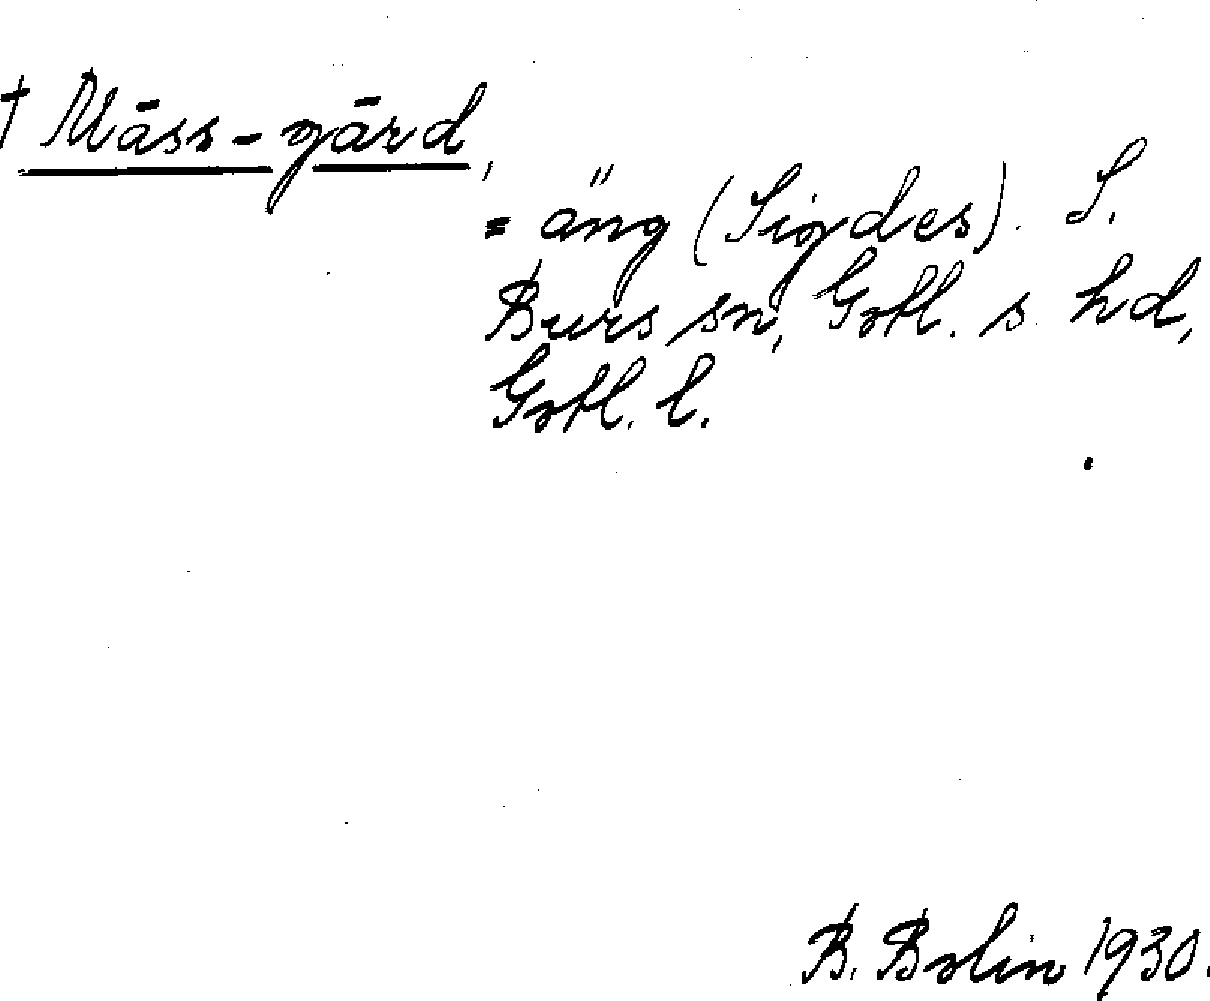 † Māss-gārd,
= äng (Sigdes). S.
Burs sn, Gotl. s. hd,
Gotl. l.
B. Bolin 1930.